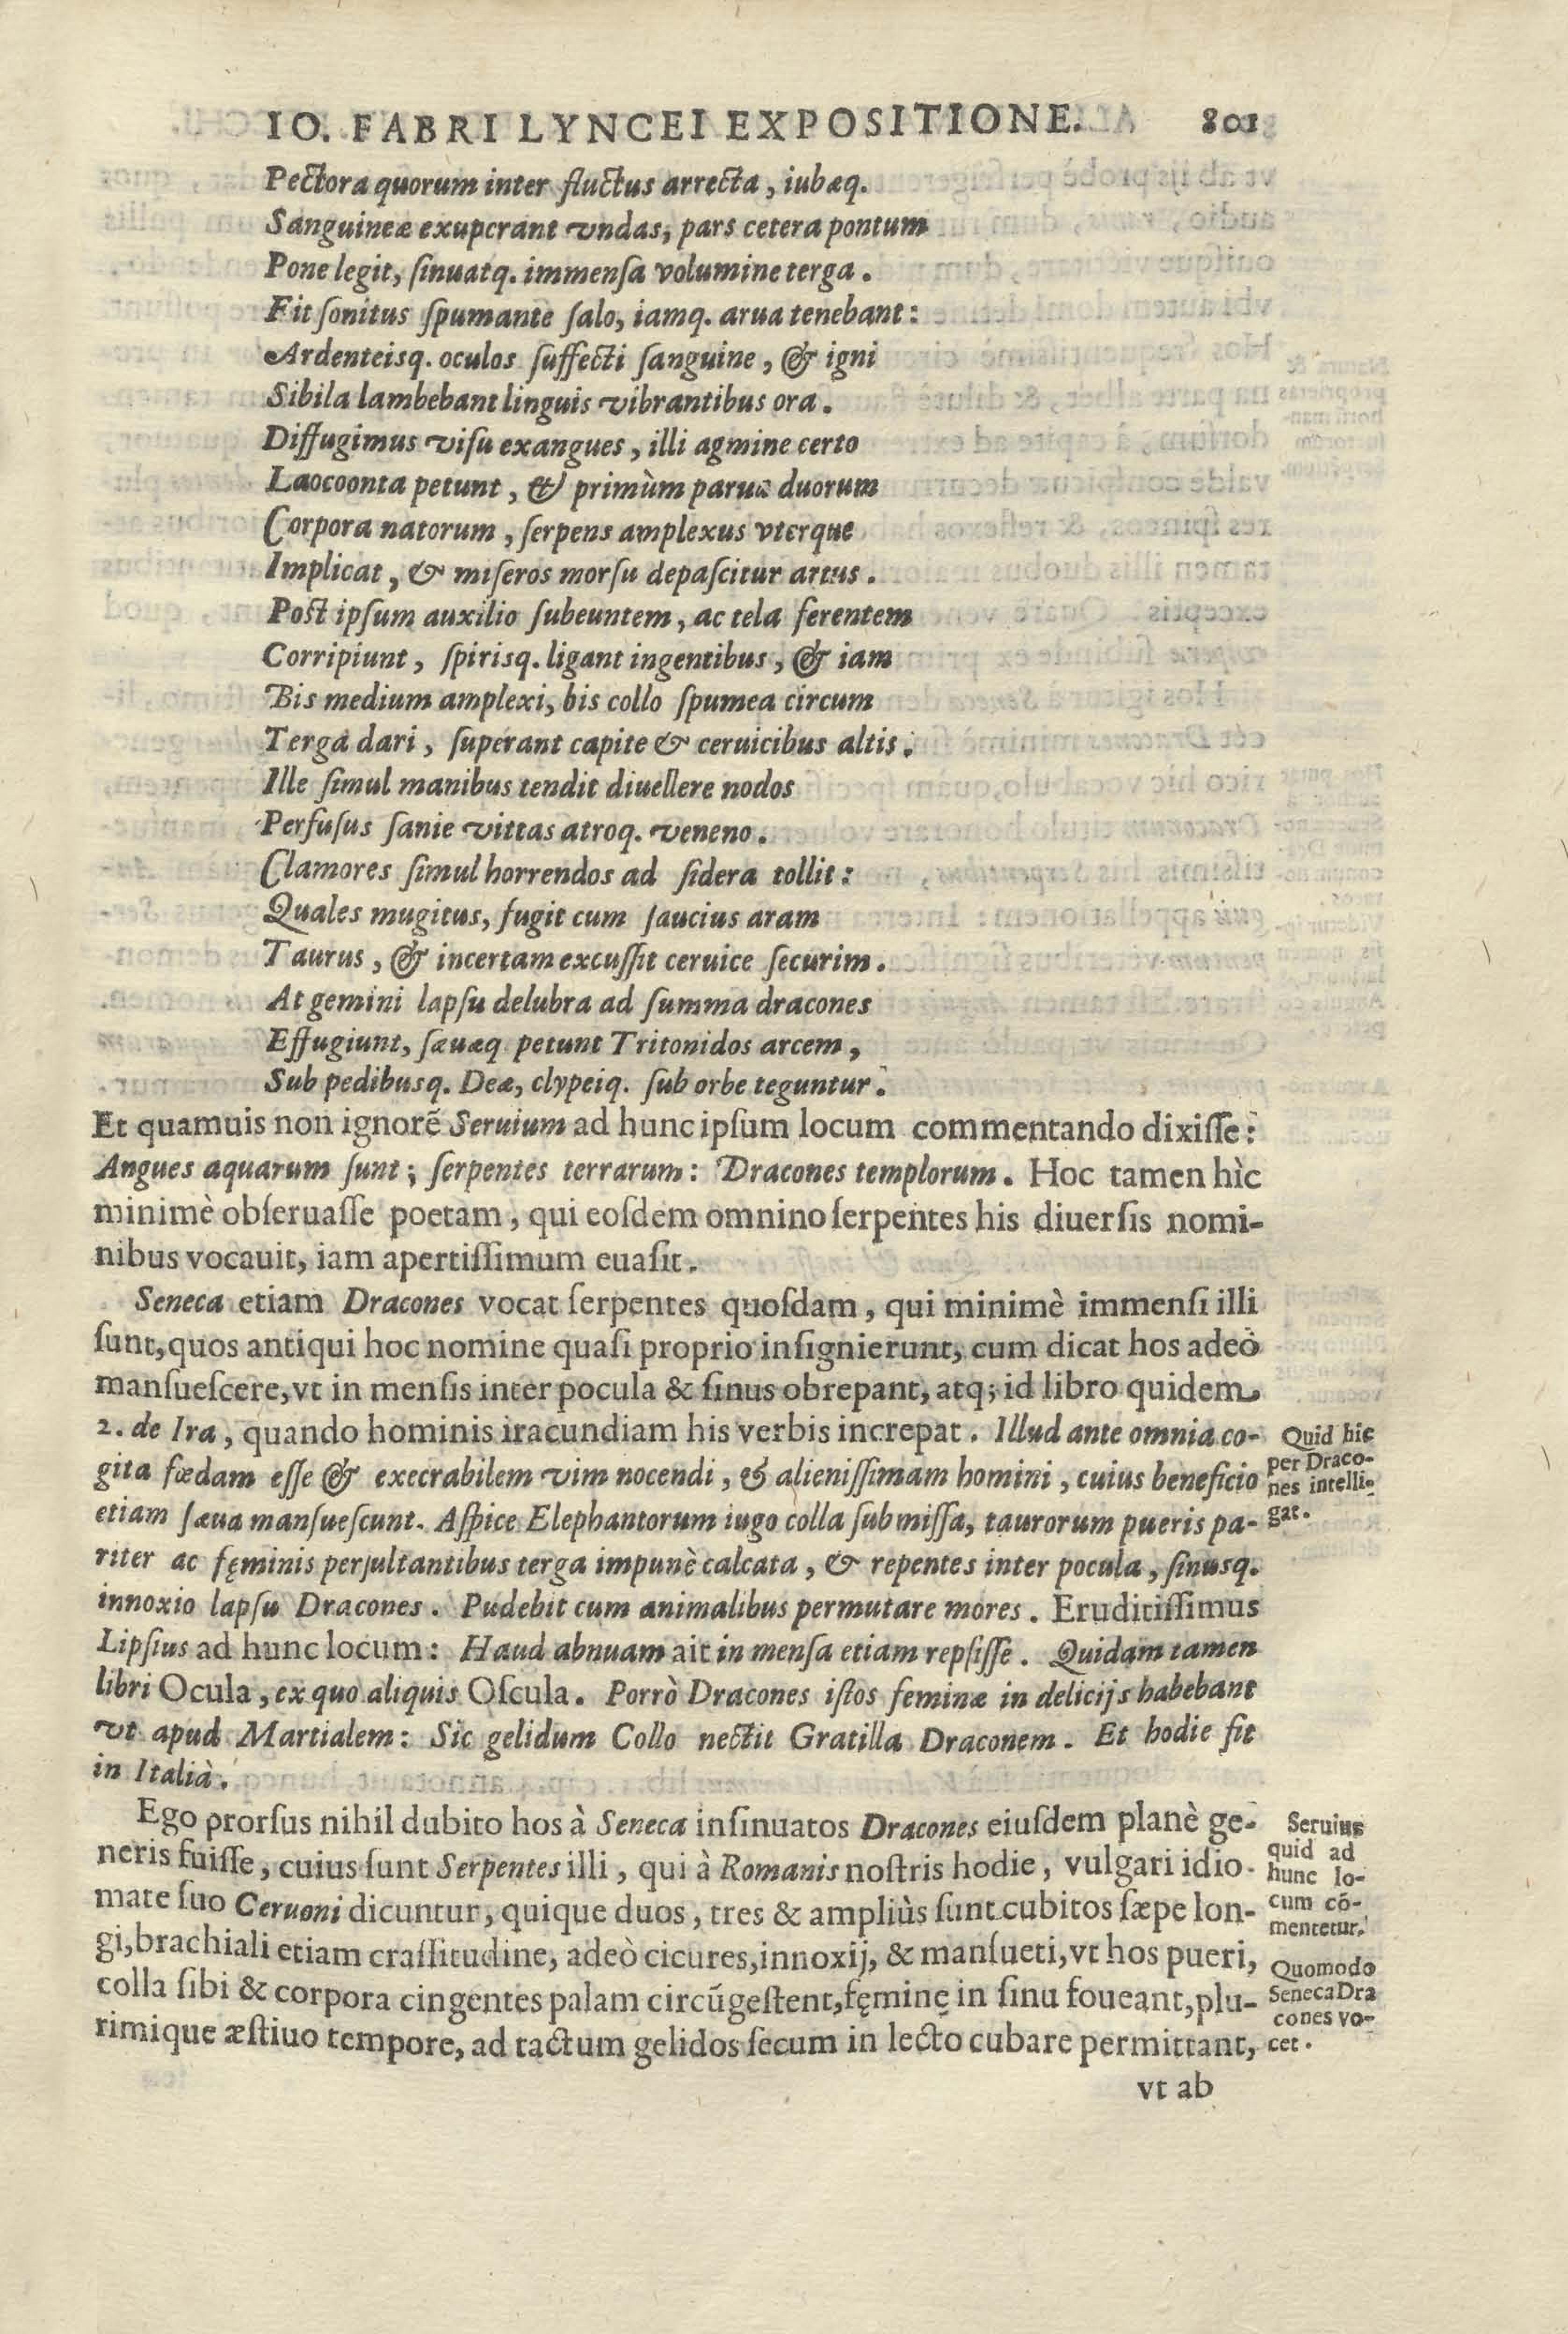 IO. FABRI LYNCEI EXPOSITIONE. 801
Pectora quorum inter fluctus arrecta, iubæq.
Sanguineæ exuperant vndas, pars cetera pontum
Pone legit, ſinuatq. immenſa volumine terga.
Fit ſonitus ſpumante ſalo, iamq. arua tenebant:
Ardenteisq. oculos ſuffecti ſanguine, & igni
Sibila lambebant linguis vibrantibus ora.
Diffugimus viſu exangues, illi agmine certo
Laocoonta petunt, & primùm parua duorum
Corpora natorum, ſerpens amplexus vterque
Implicat, & miſeros morſu depaſcitur artus.
Poſt ipſum auxilio ſubeuntem, ac tela ferentem
Corripiunt, ſpirisq. ligant ingentibus, & iam
Bis medium amplexi, bis collo ſpumea circum
Terga dari, ſuperant capite & ceruicibus altis.
Ille ſimul manibus tendit diuellere nodos
Perfuſus ſanie vittas atroq. veneno.
Clamores ſimul horrendos ad ſidera tollit:
Quales mugitus, fugit cum ſaucius aram
Taurus, & incertam excuſſit ceruice ſecurim.
At gemini lapſu delubra ad ſumma dracones
Effugiunt, ſæuæq. petunt Tritonidos arcem,
Sub pedibusq. Deæ, clypeiq. ſub orbe teguntur.
Et quamuis non ignorē Seruium ad hunc ipſum locum commentando dixiſſe:
Angues aquarum ſunt; ſerpentes terrarum: Dracones templorum. Hoc tamen hìc
minimè obſeruaſſe poetam, qui eoſdem omnino ſerpentes his diuerſis nomi-
nibus vocauit, iam apertiſſimum euaſit.
Seneca etiam Dracones vocat ſerpentes quoſdam, qui minimè immenſi illi
ſunt, quos antiqui hoc nomine quaſi proprio inſignierunt, cum dicat hos adeò
manſueſcere, vt in menſis inter pocula & ſinus obrepant, atq; id libro quidem
2. de Ira, quando hominis iracundiam his verbis increpat. Illud ante omnia co-
gita fœdam eſſe & execrabilem vim nocendi, & alieniſſimam homini, cuius beneficio
etiam ſæua manſueſcunt. Aſpice Elephantorum iugo colla ſubmiſſa, taurorum pueris pa-
riter ac fęminis perſultantibus terga impunè calcata, & repentes inter pocula, ſinusq.
innoxio lapſu Dracones. Pudebit cum animalibus permutare mores. Eruditiſſimus
Lipſius ad hunc locum: Haud abnuam ait in menſa etiam repſiſſe. Quidam tamen
libri Ocula, ex quo aliquis Oſcula. Porrò Dracones iſtos feminæ in delicijs habebant
vt apud Martialem: Sic gelidum Collo nectit Gratilla Draconem. Et hodie fit
in Italià.
Quid hic
per Draco-
nes intelli-
gat.
Ego prorſus nihil dubito hos à Seneca inſinuatos Dracones eiuſdem planè ge-
neris fuiſſe, cuius ſunt Serpentes illi, qui à Romanis noſtris hodie, vulgari idio-
mate ſuo Ceruoni dicuntur, quique duos, tres & ampliùs ſunt cubitos ſæpe lon-
gi, brachiali etiam craſſitudine, adeò cicures, innoxij, & manſueti, vt hos pueri,
colla ſibi & corpora cingentes palam circūgeſtent, fęminę in ſinu foueant, plu-
rimique æſtiuo tempore, ad tactum gelidos ſecum in lecto cubare permittant,
Seruius
quid ad
hunc lo-
cum cō-
mentetur.
Quomodo
Seneca Dra
cones vo-
cet.
vt ab